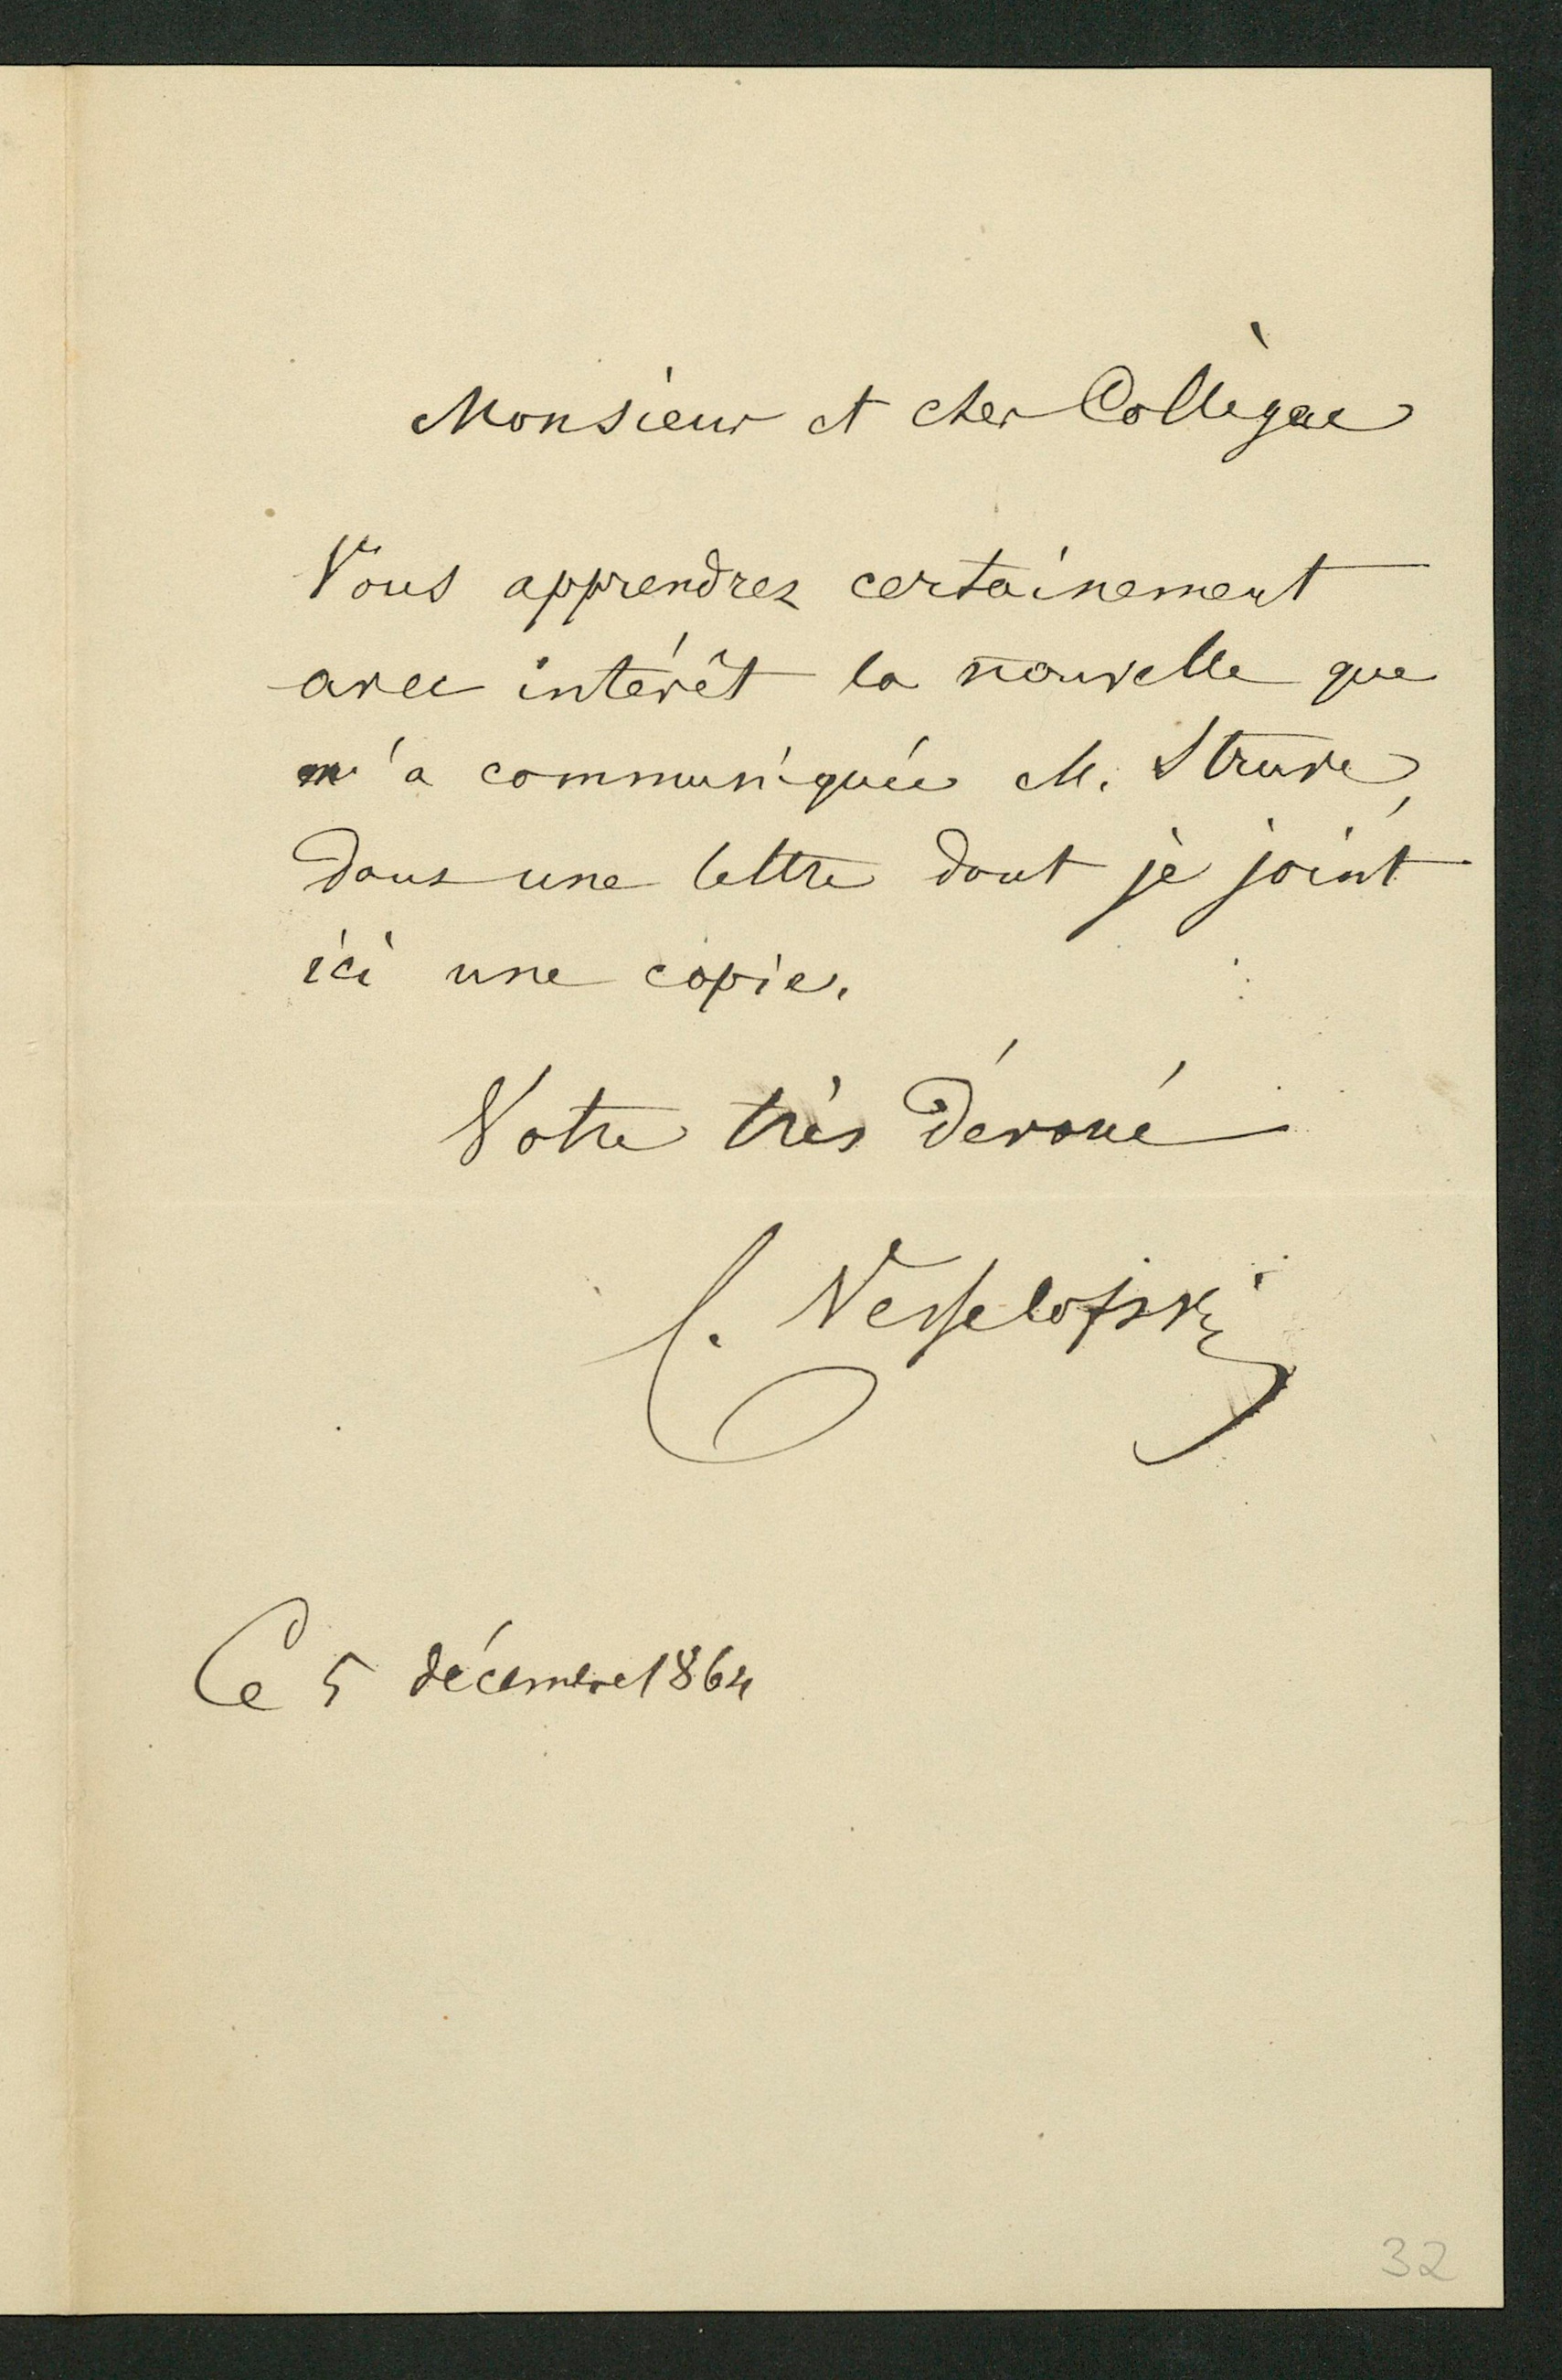 Monsieur et cher Collègue
Vous apprendrez certainement
avec intérêt la nouvelle que
m'a communiquée M. Struve,
dans une lettre dont je joint
ici une copie.
Votre très dévoué
C. Vesselofski
Ce 5 décembre 1864
32